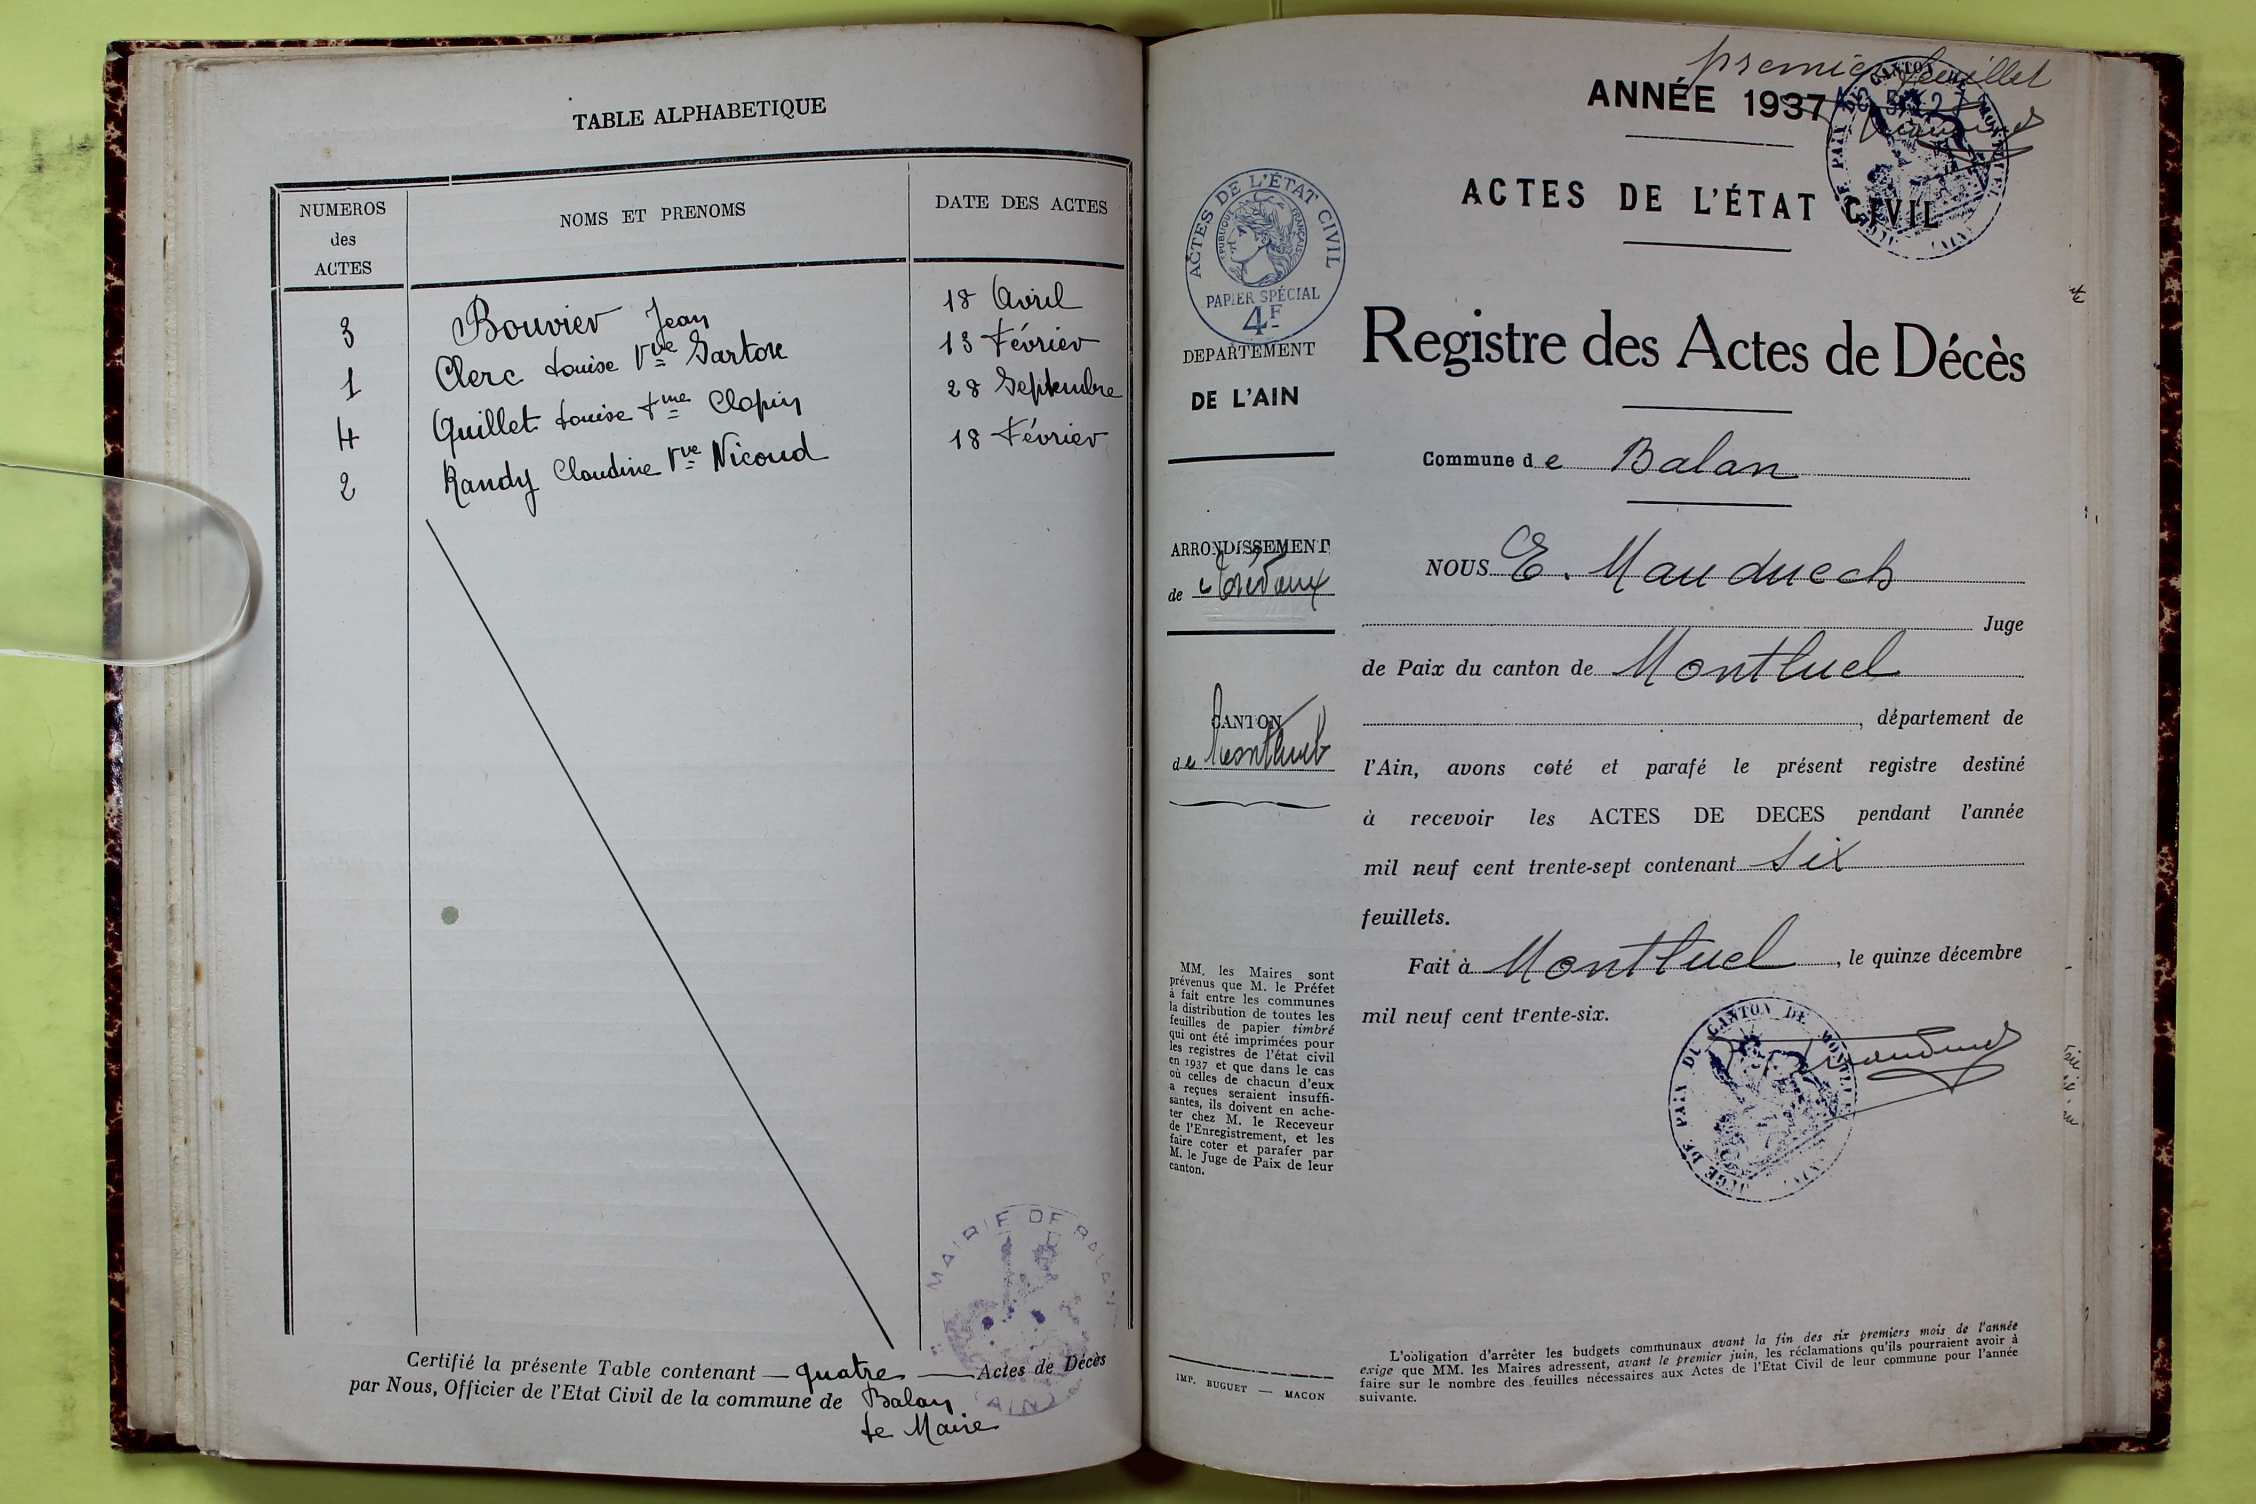 TABLE ALPHABETIQUE
NUMEROS des ACTES
NOMS ET PRENOMS
DATE DES ACTES
3 Bouvier Jean 18 Avril
1 Clerc Louise Vve Sartore 13 Février
4 Quillet Louise fme Clapin 28 Septembre
2 Randy Claudine Vve Nicoud 18 Février
Certifié la présente Table contenant quatre Actes de Décès
par Nous, Officier de l'Etat Civil de la commune de Balan
Le Maire
MAIRIE DE BALAN
AIN
premier feuillet
ANNÉE 1937
ACTES DE L'ÉTAT CIVIL
ACTES DE L'ÉTAT CIVIL
RÉPUBLIQUE FRANÇAISE
PAPIER SPÉCIAL
4F
DEPARTEMENT
DE L'AIN
ARRONDISSEMENT
de Trévoux
CANTON
de Montluel
MM. les Maires sont
prévenus que M. le Préfet
à fait entre les communes
la distribution de toutes les
feuilles de papier timbré
qui ont été imprimées pour
les registres de l'état civil
en 1937 et que dans le cas
où celles de chacun d'eux
a reçues seraient insuffi-
santes, ils doivent en ache-
ter chez M. le Receveur
de l'Enregistrement, et les
faire coter et parafer par
M. le Juge de Paix de leur
canton.
IMP. BUGUET — MACON
Registre des Actes de Décès
Commune de Balan
NOUS E. Mauduech
Juge
de Paix du canton de Montluel
, département de
l'Ain, avons coté et parafé le présent registre destiné
à recevoir les ACTES DE DECES pendant l'année
mil neuf cent trente-sept contenant six
feuillets.
Fait à Montluel, le quinze décembre
mil neuf cent trente-six.
JUGE DE PAIX DU CANTON DE MONTLUEL (AIN)
L'obligation d'arrêter les budgets communaux avant la fin des six premiers mois de l'année
exige que MM. les Maires adressent, avant le premier juin, les réclamations qu'ils pourraient avoir à
faire sur le nombre des feuilles nécessaires aux Actes de l'Etat Civil de leur commune pour l'année
suivante.